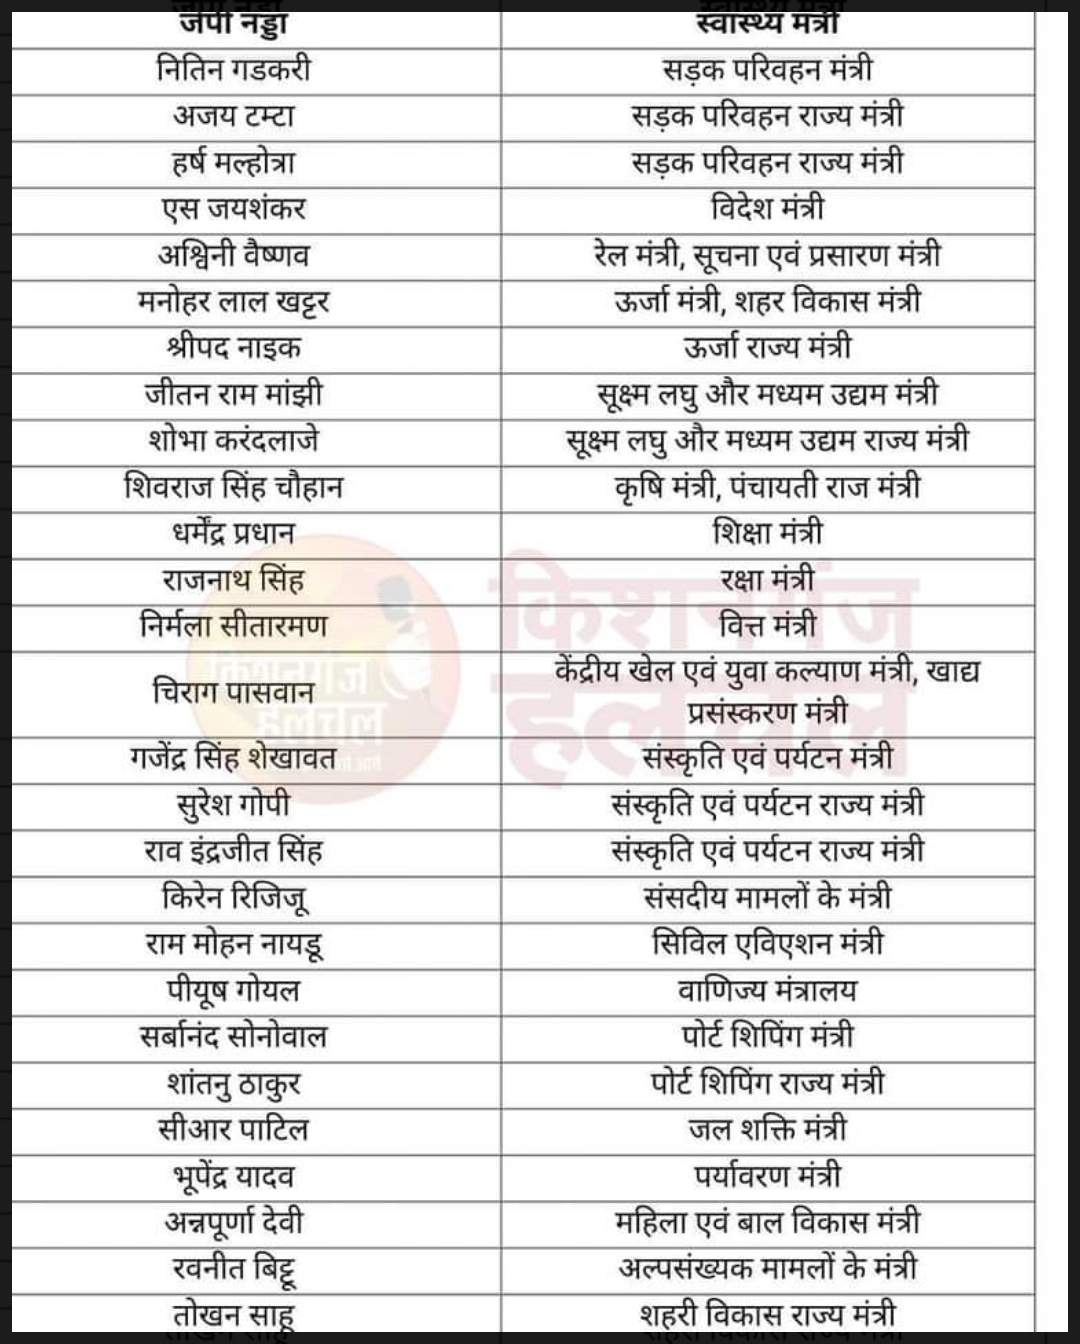 जेपी नड्डा स्वास्थ्य मंत्री
नितिन गडकरी सड़क परिवहन मंत्री
अजय टम्टा सड़क परिवहन राज्य मंत्री
हर्ष मल्होत्रा सड़क परिवहन राज्य मंत्री
एस जयशंकर विदेश मंत्री
अश्विनी वैष्णव रेल मंत्री, सूचना एवं प्रसारण मंत्री
मनोहर लाल खट्टर ऊर्जा मंत्री, शहर विकास मंत्री
श्रीपद नाइक ऊर्जा राज्य मंत्री
जीतन राम मांझी सूक्ष्म लघु और मध्यम उद्यम मंत्री
शोभा करंदलाजे सूक्ष्म लघु और मध्यम उद्यम राज्य मंत्री
शिवराज सिंह चौहान कृषि मंत्री, पंचायती राज मंत्री
धर्मेंद्र प्रधान शिक्षा मंत्री
राजनाथ सिंह रक्षा मंत्री
निर्मला सीतारमण वित्त मंत्री
चिराग पासवान केंद्रीय खेल एवं युवा कल्याण मंत्री, खाद्य
प्रसंस्करण मंत्री
गजेंद्र सिंह शेखावत संस्कृति एवं पर्यटन मंत्री
सुरेश गोपी संस्कृति एवं पर्यटन राज्य मंत्री
राव इंद्रजीत सिंह संस्कृति एवं पर्यटन राज्य मंत्री
किरेन रिजिजू संसदीय मामलों के मंत्री
राम मोहन नायडू सिविल एविएशन मंत्री
पीयूष गोयल वाणिज्य मंत्रालय
सर्बानंद सोनोवाल पोर्ट शिपिंग मंत्री
शांतनु ठाकुर पोर्ट शिपिंग राज्य मंत्री
सीआर पाटिल जल शक्ति मंत्री
भूपेंद्र यादव पर्यावरण मंत्री
अन्नपूर्णा देवी महिला एवं बाल विकास मंत्री
रवनीत बिट्टू अल्पसंख्यक मामलों के मंत्री
तोखन साहू शहरी विकास राज्य मंत्री
किशनगंज
हलचल
किशनगंज
हलचल